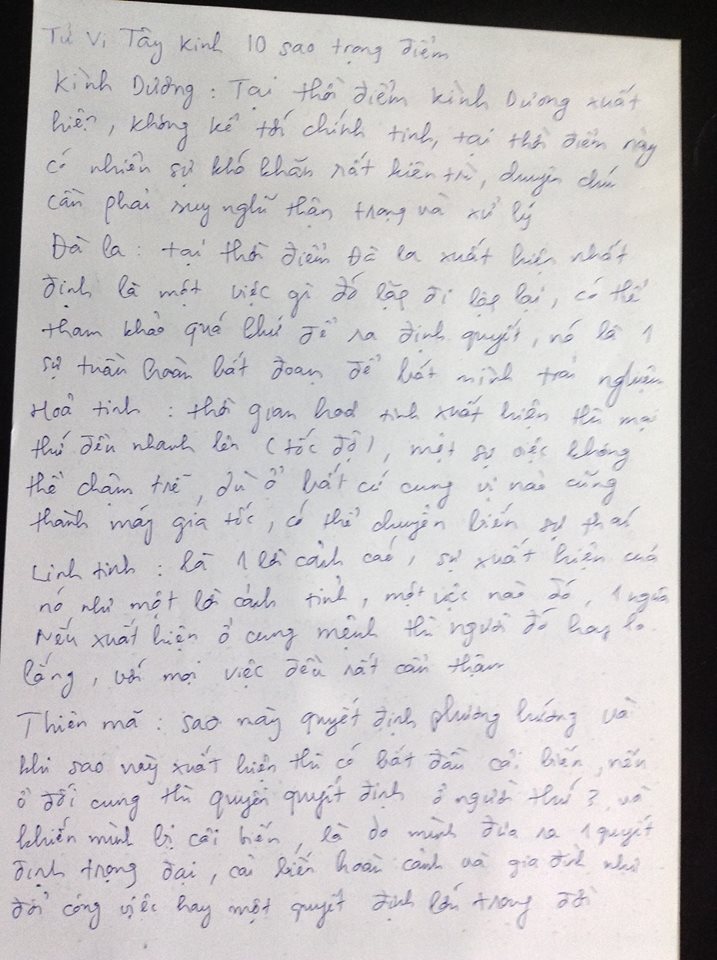 Tử Vi Tây Kinh 10 sao trọng điểm
Kình Dương: Tại thời điểm Kình Dương xuất
hiện, không kể tới chính tinh, tại thời điểm này
có nhiều sự khó khăn rất kiên trì, duyên chú
cần phải suy nghĩ thận trọng và xử lý
Đà la: tại thời điểm Đà la xuất hiện nhất
định là một việc gì đó lặp đi lặp lại, có thể
tham khảo quá khứ để ra định quyết, nó là 1
sự tuần hoàn bất đoạn để bắt mình trải nghiệm
Hoả tinh: thời gian hoả tinh xuất hiện thì mọi
thứ đều nhanh lên (tốc độ), một sự việc không
thể chậm trễ, dù ở bất cứ cung vị nào cũng
thành máy gia tốc, có thể chuyển biến sự thái
Linh tinh: là 1 lời cảnh cáo, sự xuất hiện của
nó như một lời cảnh tỉnh, một việc nào đó, 1 người
Nếu xuất hiện ở cung mệnh thì người đó hay lo
lắng, với mọi việc đều rất cẩn thận
Thiên mã: sao này quyết định phương hướng và
khi sao này xuất hiện thì có bắt đầu cải biến, nếu
ở đối cung thì quyền quyết định ở người thứ 3 và
khiến mình bị cải biến, là do mình đưa ra 1 quyết
định trọng đại, cải biến hoàn cảnh và gia đình như
đổi công việc hay một quyết định lớn trong đời